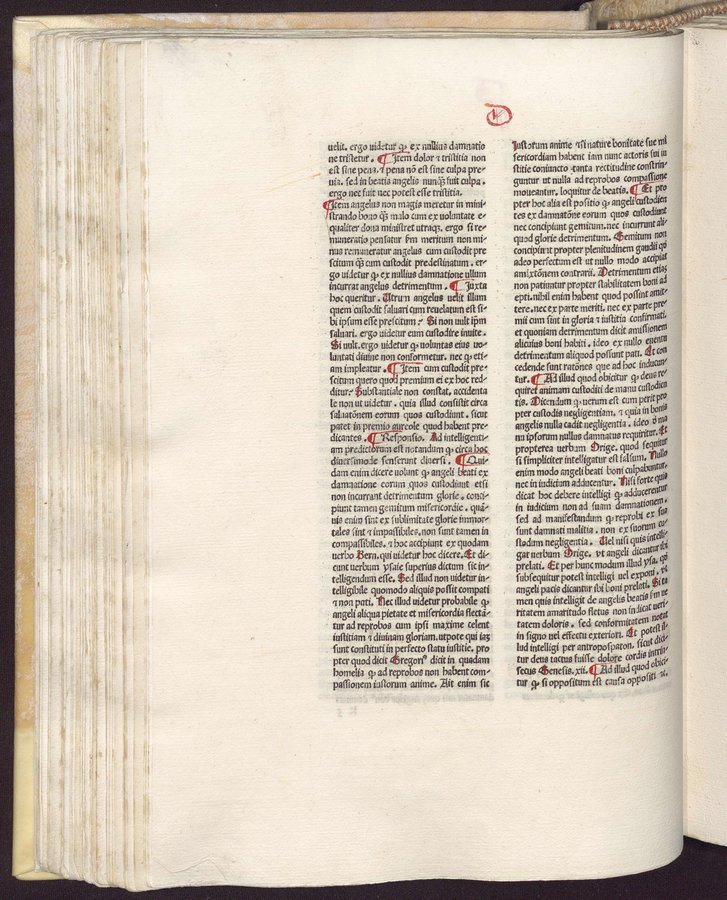 D
uelit. ergo uidetur ꝙ ex nullius damnatio
ne tristetur. ¶ Item dolor ⁊ tristitia non
est sine pena. ⁊ pena nō est sine culpa pre-
uia. sed in beatis angelis nunꝗ̄ fuit culpa.
ergo nec fuit nec potest esse tristitia.
¶ Item angelus non magis meretur in mini-
strando bono ꝗ̄ malo cum ex voluntate e-
qualiter dona ministret utraqꝫ. ergo si re-
muneratio pensatur ẜm meritum non mi-
nus remuneratur angelus cum custodit pre
scitum ꝗ̄ cum custodit predestinatum. er-
go uidetur ꝙ ex nullius damnatione ullum
incurrat angelus detrimentum. ¶ Juxta
hoc queritur. Utrum angelus uelit illum
quem custodit saluari cum reuelatum est si-
bi ipsum esse prescitum. Si non uult ip̄m
saluari. ergo uidetur eum custodire inuite.
Si uult. ergo uidetur ꝙ voluntas eius vo-
luntati diuine non conformetur. nec ꝙ eti-
am impleatur. ¶ Item cum custodit pre-
scitum quero quod premium ei ex hoc red-
ditur. Substantiale non constat. accidenta
le non ut uidetur. quia illud consistit circa
saluatōnem eorum quos custodiunt. sicut
patet in premio aureole quod habent pre-
dicantes. ¶ Responsio. Ad intelligenti-
am predictorum est notandum ꝙ circa hoc
diuersimode senserunt diuersi. ¶ Qui-
dam enim dicere uolunt ꝙ angeli beati ex
damnatione eorum quos custodiunt etsi
non incurrant detrimentum glorie. conci-
piunt tamen gemitum misericordie. quā-
uis enim sint ex sublimitate glorie immor-
tales sint ⁊ impassibiles. non sunt tamen in
compassibiles. ⁊ hoc accipiunt ex quodam
uerbo Bern. qui uidetur hoc dicere. Et di-
cunt uerbum ysaie superius dictum sic in-
telligendum esse. Sed illud non uidetur in-
telligibile quomodo aliquis possit compati
⁊ non pati. Nec illud uidetur probabile ꝙ
angeli aliqua pietate et misericordia flectā-
tur ad reprobos cum ipsi maxime celent
iustitiam ⁊ diuinam gloriam. utpote qui iaꝫ
sunt constituti in perfecto statu iustitie. pro
pter quod dicit Gregoriꝰ dicit in quadam
homelia ꝙ ad reprobos non habent com-
passionem iustorum anime. Ait enim sic
Iustorum anime ⁊ si nature bonitate sue mi
sericordiam habent iam nunc actoris sui iu
stitie coniuncto tanta rectitudine constrin-
guntur ut nulla ad reprobos compassione
moueantur. loquitur de beatis. ¶ Et pro
pter hoc alia est positio ꝙ angeli custodien
tes ex damnatōne eorum quos custodiunt
nec concipiunt gemitum. nec incurrunt ali-
quod glorie detrimentum. Gemitum non
concipiunt propter plenitudinem gaudij qd̓
adeo perfectum est ut nullo modo accipiat
amixtōnem contrarii. Detrimentum etiaꝫ
non patiuntur propter stabilitatem boni ad
epti. nihil enim habent quod possint amit-
tere. nec ex parte meriti. nec ex parte pre-
mii cum sint in gloria ⁊ iustitia confirmati.
et quoniam detrimentum dicit amissionem
alicuius boni habiti. ideo ex nullo euentu
detrimentum aliquod possunt pati. Et con
cedende sunt ratōnes que ad hoc inducun-
tur. ¶ Ad illud quod obicitur ꝙ deus re-
quiret animam custoditi de manu custodien
tis. Dicendum ꝙ uerum est cum perit pro
pter custodis negligentiam. ⁊ quia in bonis
angelis nulla cadit negligentia. ideo d̓ ma
nu ipsorum nullus damnatus requiritur. Et
propterea verbum Orige. quod sequitur
si simpliciter intelligatur est falsum. Nullo
enim modo angeli beati boni culpabuntur.
nec in iudicium adducentur. Nisi forte quis
dicat hoc debere intelligi ꝙ adducerentur
in iudicium non ad suam damnationem.
sed ad manifestandum ꝙ reprobi ex sua
sunt damnati malitia. non ex suorum cu-
stodum negligentia. Uel nisi quis intelli-
gat uerbum Orige. vt angeli dicantur ibi
prelati. Et per hunc modum illud ysa. qd̓
subsequitur potest intelligi uel exponi. vt
angeli pacis dicantur ibi boni prelati. Si ta
men quis intelligit de angelis beatis ẜm ue
ritatem amaritudo fletus non indicat ueri-
tatem doloris. sed conformitatem notat
in signo uel effectu exteriori. Et potest il-
lud intelligi per antropospaton. sicut dici-
tur deus tactus fuisse dolore cordis intrin-
secus Genesis. xii. ¶ Ad illud quod obici-
tur ꝙ si oppositum est causa oppositi ⁊c.